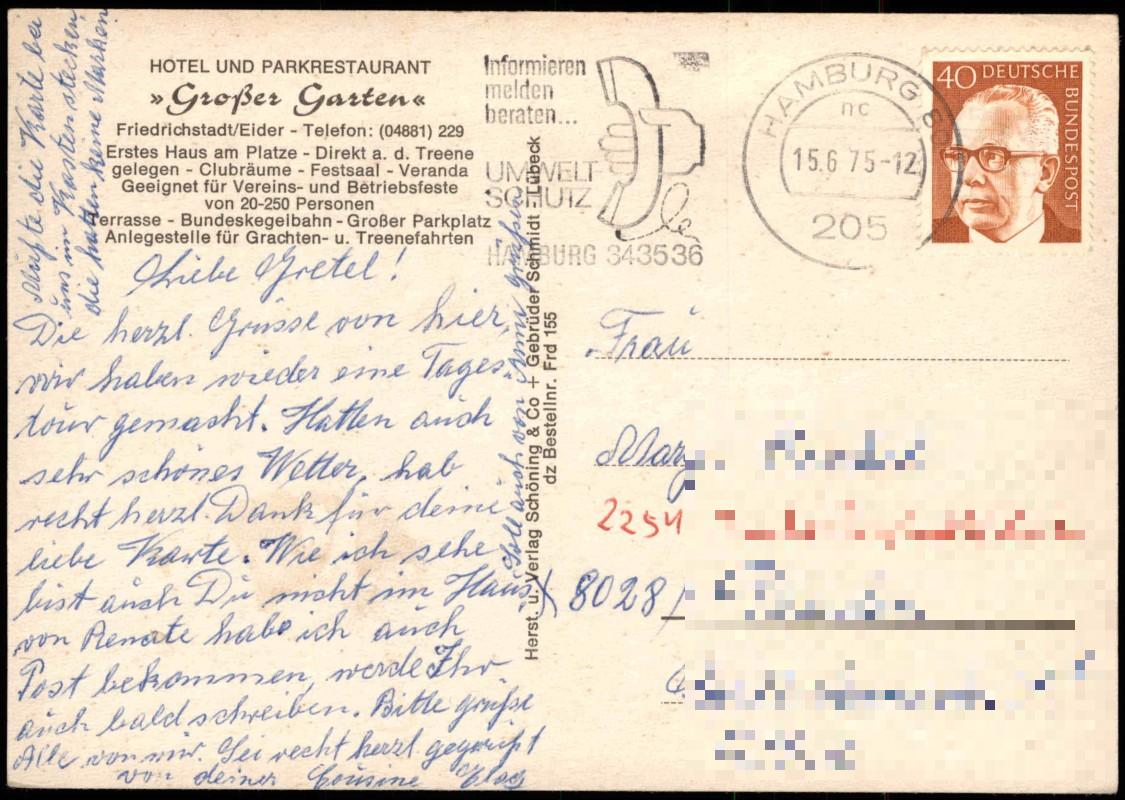 HOTEL UND PARKRESTAURANT
»Großer Garten«
Friedrichstadt/Eider - Telefon: (04881) 229
Erstes Haus am Platze - Direkt a. d. Treene
gelegen - Clubräume - Festsaal - Veranda
Geeignet für Vereins- und Betriebsfeste
von 20-250 Personen
Terrasse - Bundeskegelbahn - Großer Parkplatz
Anlegestelle für Grachten- u. Treenefahrten
Mußte die Karte bei
uns im Kasten stecken
die hatten keine Marken
Liebe Gretel!
Die herzl. Grüsse von hier,
wir haben wieder eine Tages-
tour gemacht. Hatten auch
sehr schönes Wetter, hab
recht herzl. Dank für deine
liebe Karte. Wie ich sehe
bist auch Du nicht im Haus
von Renate habe ich auch
Post bekommen, werde Ihr
auch bald schreiben. Bitte grüße
Alle von mir. Sei recht herzl. gegrüßt
von deiner Cousine
Soll auch von grüßen
Herst. u. Verlag Schöning & Co + Gebrüder Schmidt · Lübeck
dz Bestellnr. Frd 155
Informieren
melden
beraten...
UMWELT
SCHUTZ
HAMBURG 343536
HAMBURG
nc
15.6.75-12
205
40 DEUTSCHE
BUNDESPOST
Frau
2254
8028